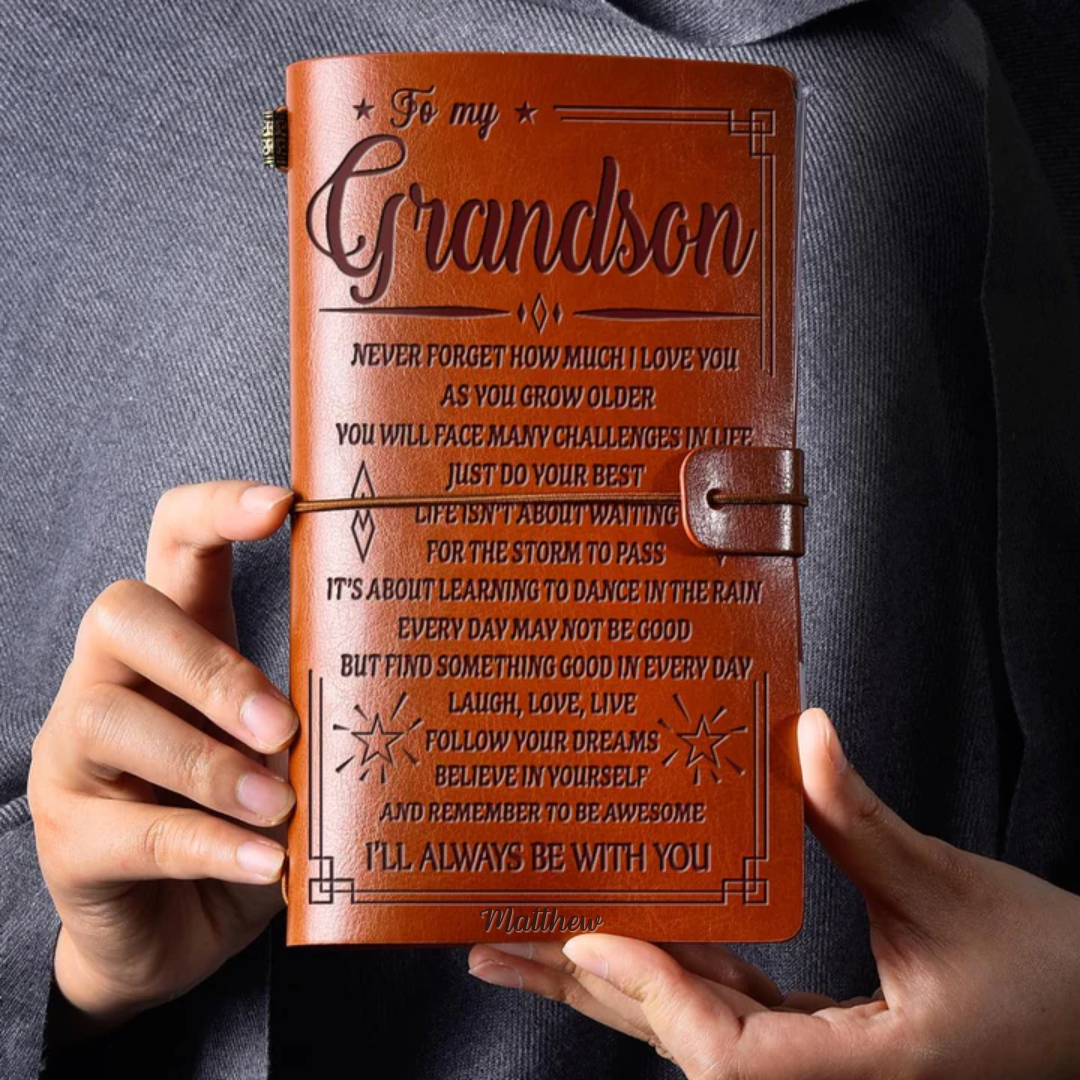 To my
Grandson
NEVER FORGET HOW MUCH I LOVE YOU
AS YOU GROW OLDER
YOU WILL FACE MANY CHALLENGES IN LIFE
JUST DO YOUR BEST
LIFE ISN'T ABOUT WAITING
FOR THE STORM TO PASS
IT'S ABOUT LEARNING TO DANCE IN THE RAIN
EVERY DAY MAY NOT BE GOOD
BUT FIND SOMETHING GOOD IN EVERY DAY
LAUGH, LOVE, LIVE
FOLLOW YOUR DREAMS
BELIEVE IN YOURSELF
AND REMEMBER TO BE AWESOME
I'LL ALWAYS BE WITH YOU
Matthew